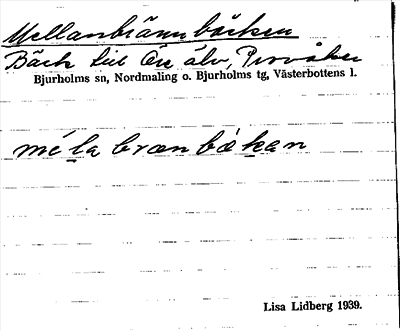 Mellanbrännbäcken
Bäck till Öre älv, Provåker
Bjurholms sn, Nordmaling o. Bjurholms tg, Västerbottens l.
méla bræn bäkan
Lisa Lidberg 1939.